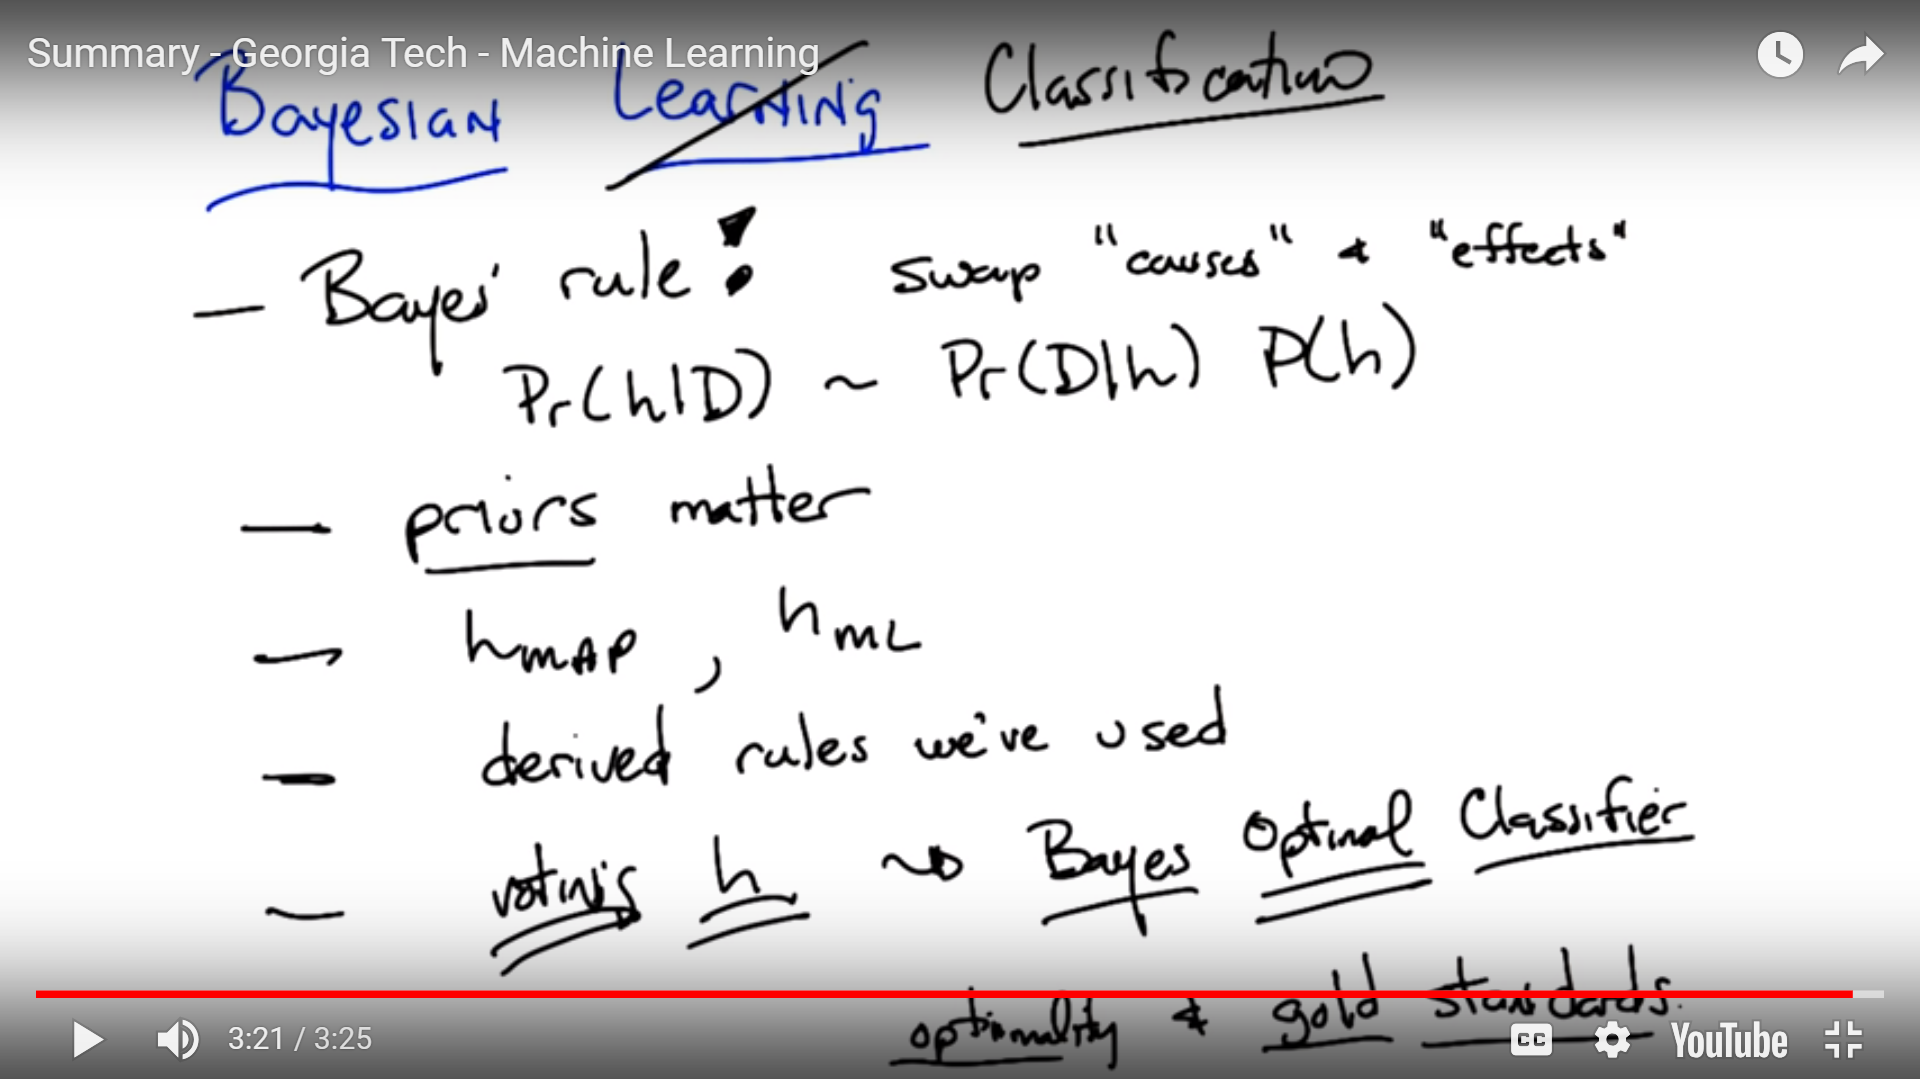 Summary - Georgia Tech - Machine Learning
Bayesian Learning Classification
— Bayes' rule! swap "causes" & "effects"
Pr(h|D) ~ Pr(D|h) P(h)
— priors matter
— hMAP, hML
— derived rules we've used
— voting h ~> Bayes Optimal Classifier
optimality & gold standards.
3:21 / 3:25
CC
YouTube